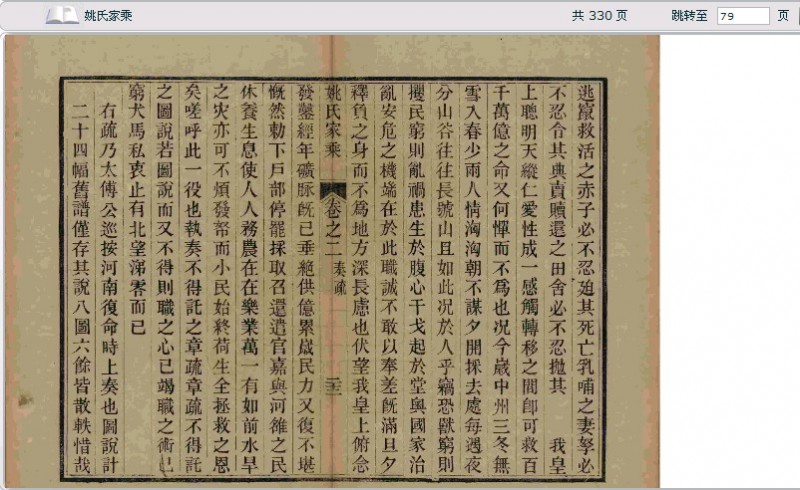 姚氏家乘
共 330 页
跳转至 79 页
逃竄救活之赤子必不忍迫其死亡乳哺之妻孥必
不忍令其典賣贖還之田舍必不忍拋其 我皇
上聰明天縱仁愛性成一感觸轉移之間卽可救百
千萬億之命又何憚而不為也况今歲中州三冬無
雪入春少雨人情洶洶朝不謀夕開採去處每遇夜
分山谷往往長號山且如此况於人乎竊恐獸窮則
攫民窮則亂禍患生於腹心干戈起於堂奥國家治
亂安危之機端在於此職誠不敢以奉差旣滿旦夕
釋負之身而不為地方深長慮也伏望我皇上俯念
姚氏家乘 卷之二 奏疏 二三
發鑿經年礦脉旣已垂絕供億累歲民力又復不堪
慨然勅下戶部停罷採取召還遣官嘉與河雒之民
休養生息使人人務農在在樂業萬一有如前水旱
之灾亦可不煩發帑而小民始終荷生全拯救之恩
矣嗟呼此一役也執奏不得託之章疏章疏不得託
之圖說若圖說而又不得則職之心已竭職之術已
窮犬馬私衷止有北望涕零而已
右疏乃太傅公巡按河南復命時上奏也圖說計
二十四幅舊譜僅存其說八圖六餘皆散軼惜哉